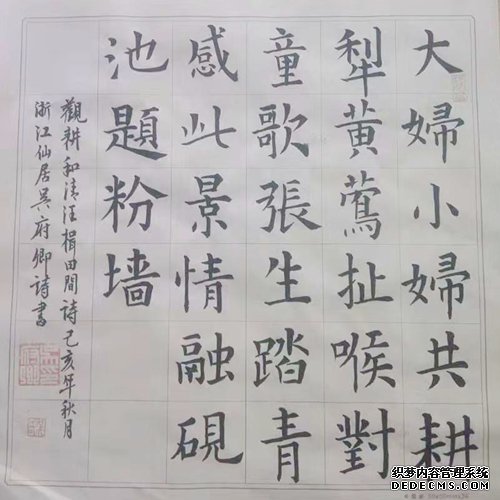 大婦小婦共耕
犁黃鶯扯喉對
童歌張生踏青
感此景情融硯
池題粉墙
觀耕和清汪楫田間詩己亥年秋月
浙江仙居吳府卿詩書
织梦内容管理系统